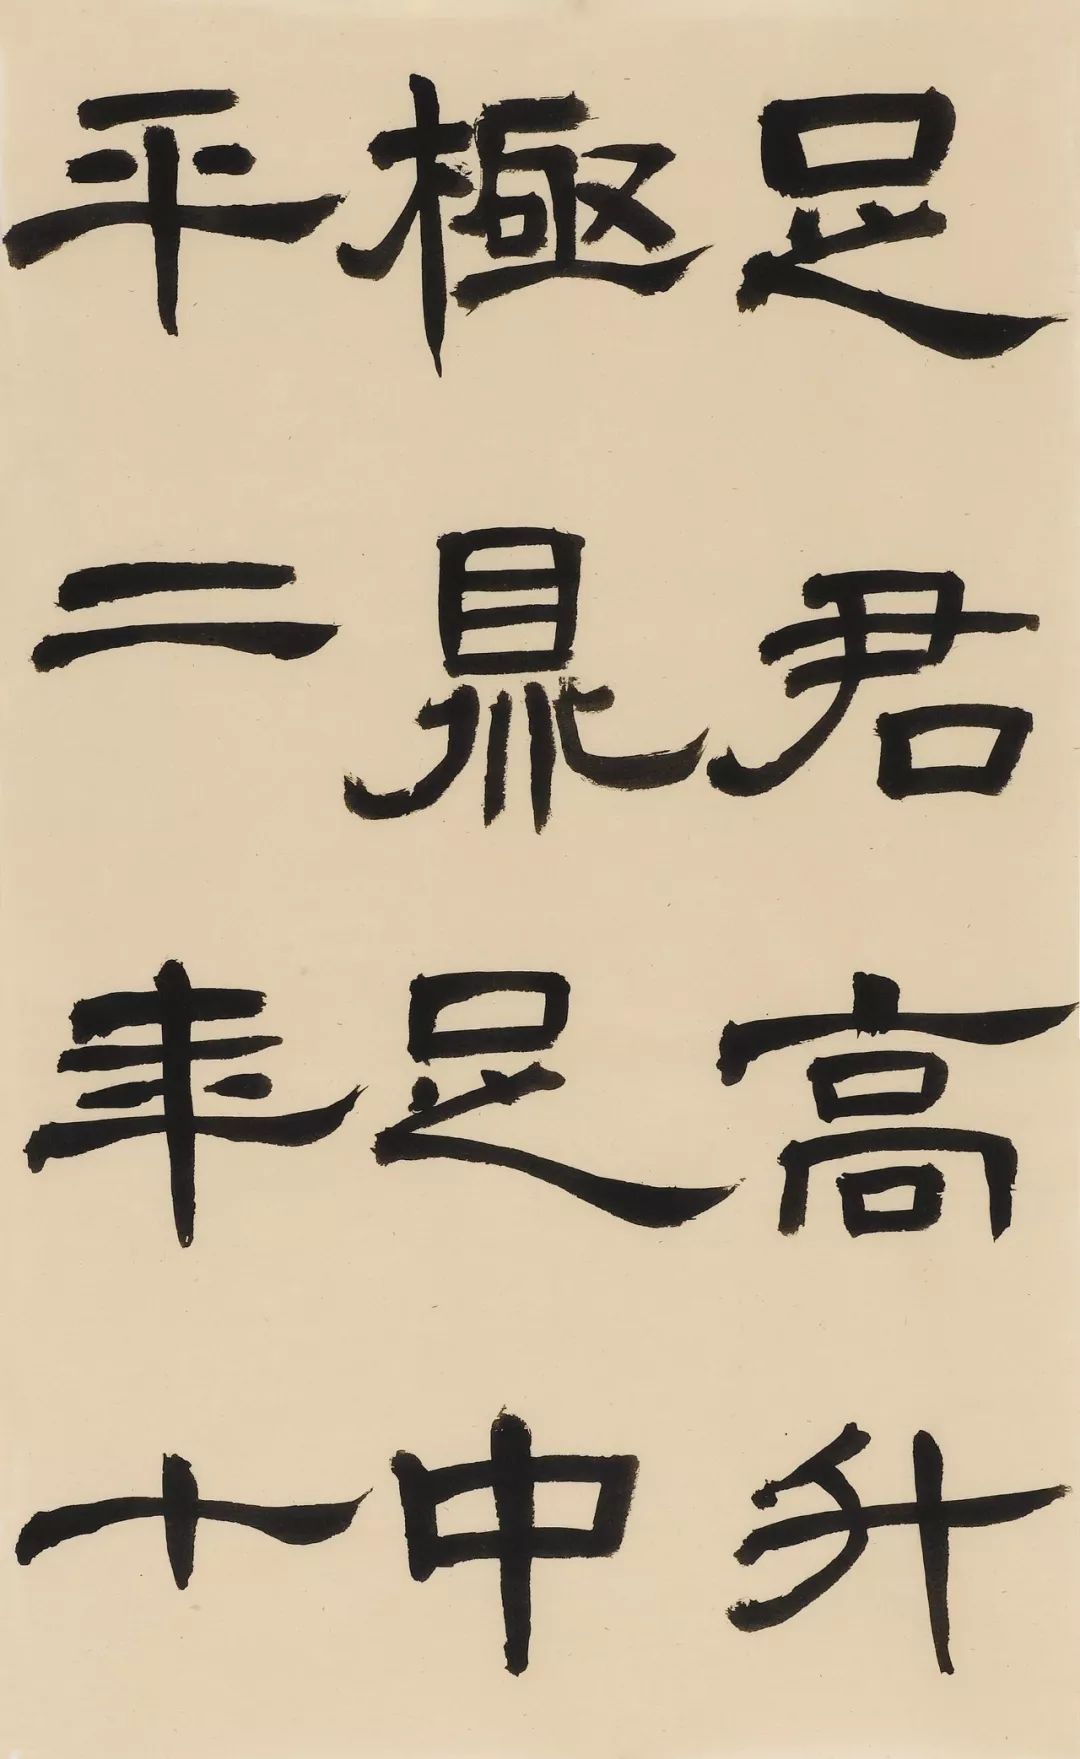 足君高升
極鼎足中
平二年十